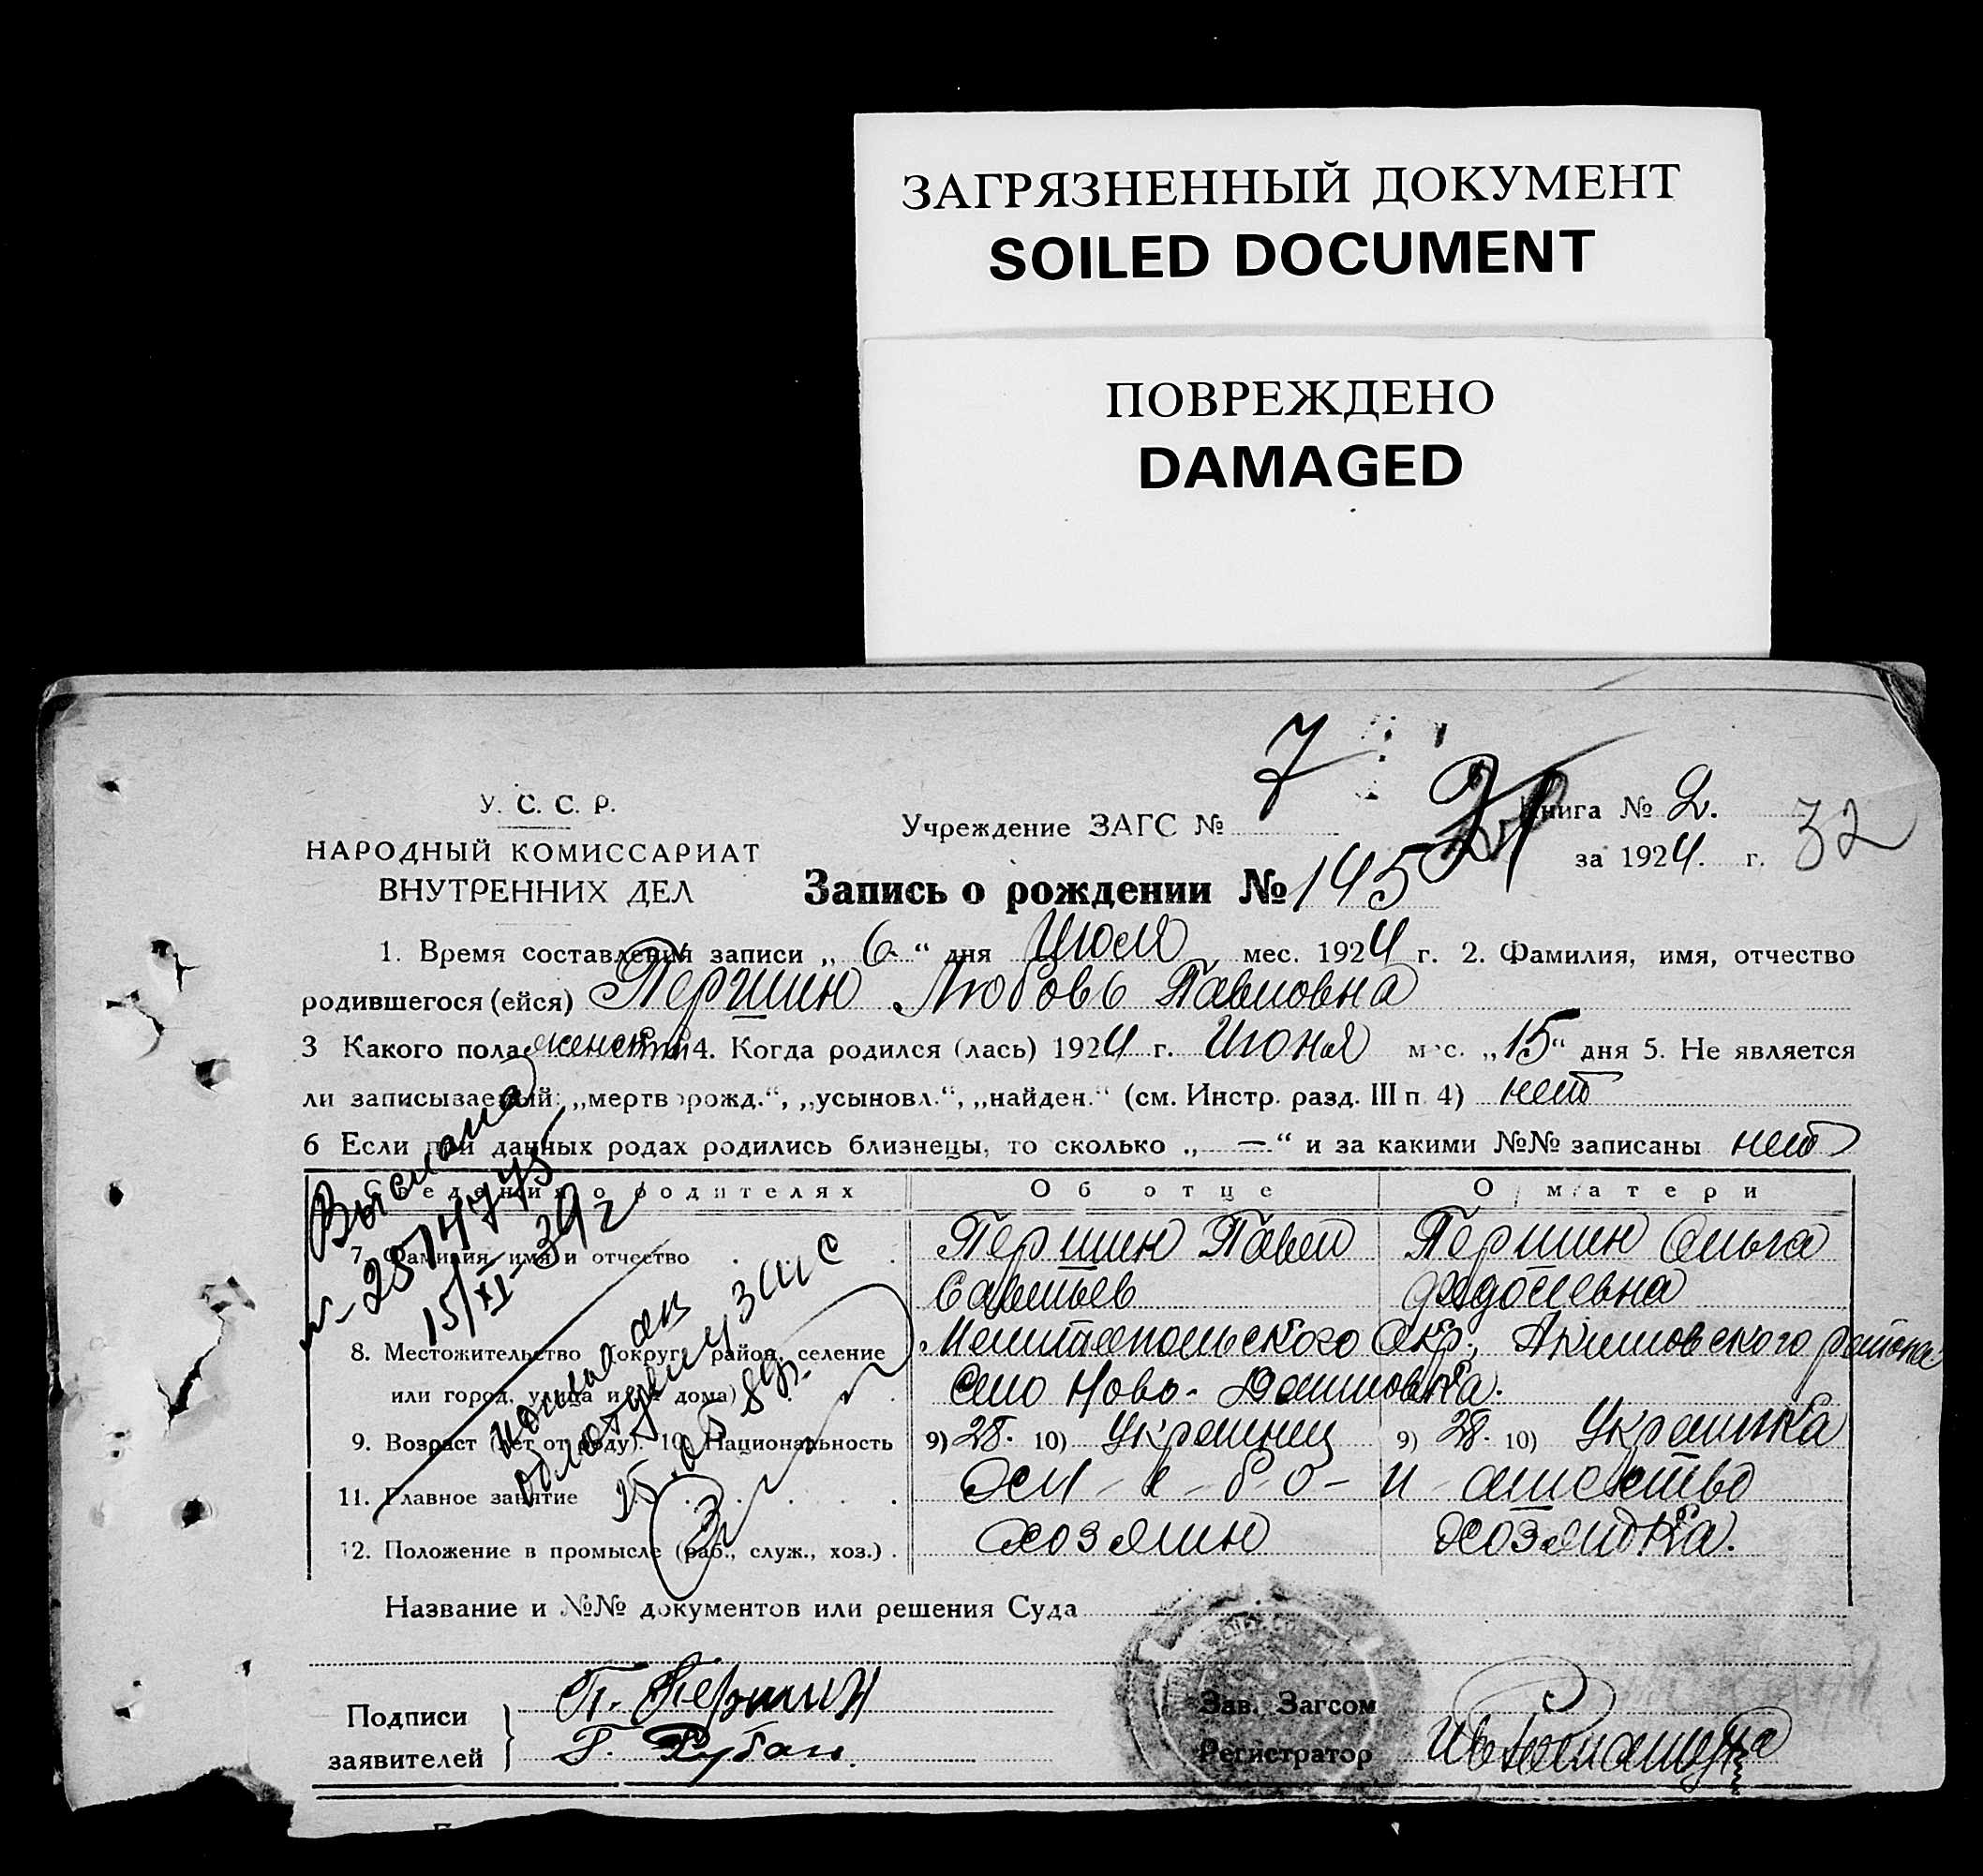 ЗАГРЯЗНЕННЫЙ ДОКУМЕНТ
SOILED DOCUMENT
ПОВРЕЖДЕНО
DAMAGED
7
32
У. С. С. Р.
НАРОДНЫЙ КОМИССАРИАТ
ВНУТРЕННИХ ДЕЛ
Учреждение ЗАГС №
Книга № 2.
за 1924. г.
Запись о рождении № 145
1. Время составления записи „ 6 “ дня Июля мес. 1924 г. 2. Фамилия, имя, отчество
родившегося (ейся) Першин Любовь Павловна
3 Какого пола женский 4. Когда родился (лась) 1924 г. Июня мес. „15“ дня 5. Не является
ли записываемый: „мертворожд.“, „усыновл.“, „найден.“ (см. Инстр. разд. III п 4) нет
6 Если при данных родах родились близнецы, то сколько „ — “ и за какими №№ записаны нет
Сведения о родителях Об отце О матери
7. Фамилия, имя и отчество Першин Павел Першин Ольга
Савельев
8. Местожительство (округ, район, селение Мелитопольского Окр., Акимовского района
или город, улица и № дома) село Ново-
9. Возраст (лет от роду). 10. Национальность 9) 28. 10) Украинец 9) 28. 10) Украинка
11. Главное занятие
12. Положение в промысле (раб., служ., хоз.) хозяин хозяйка.
15/XI-39 г
Название и №№ документов или решения Суда
Подписи
заявителей
П. Першин
Г. Рубан.
Зав. Загсом
Регистратор